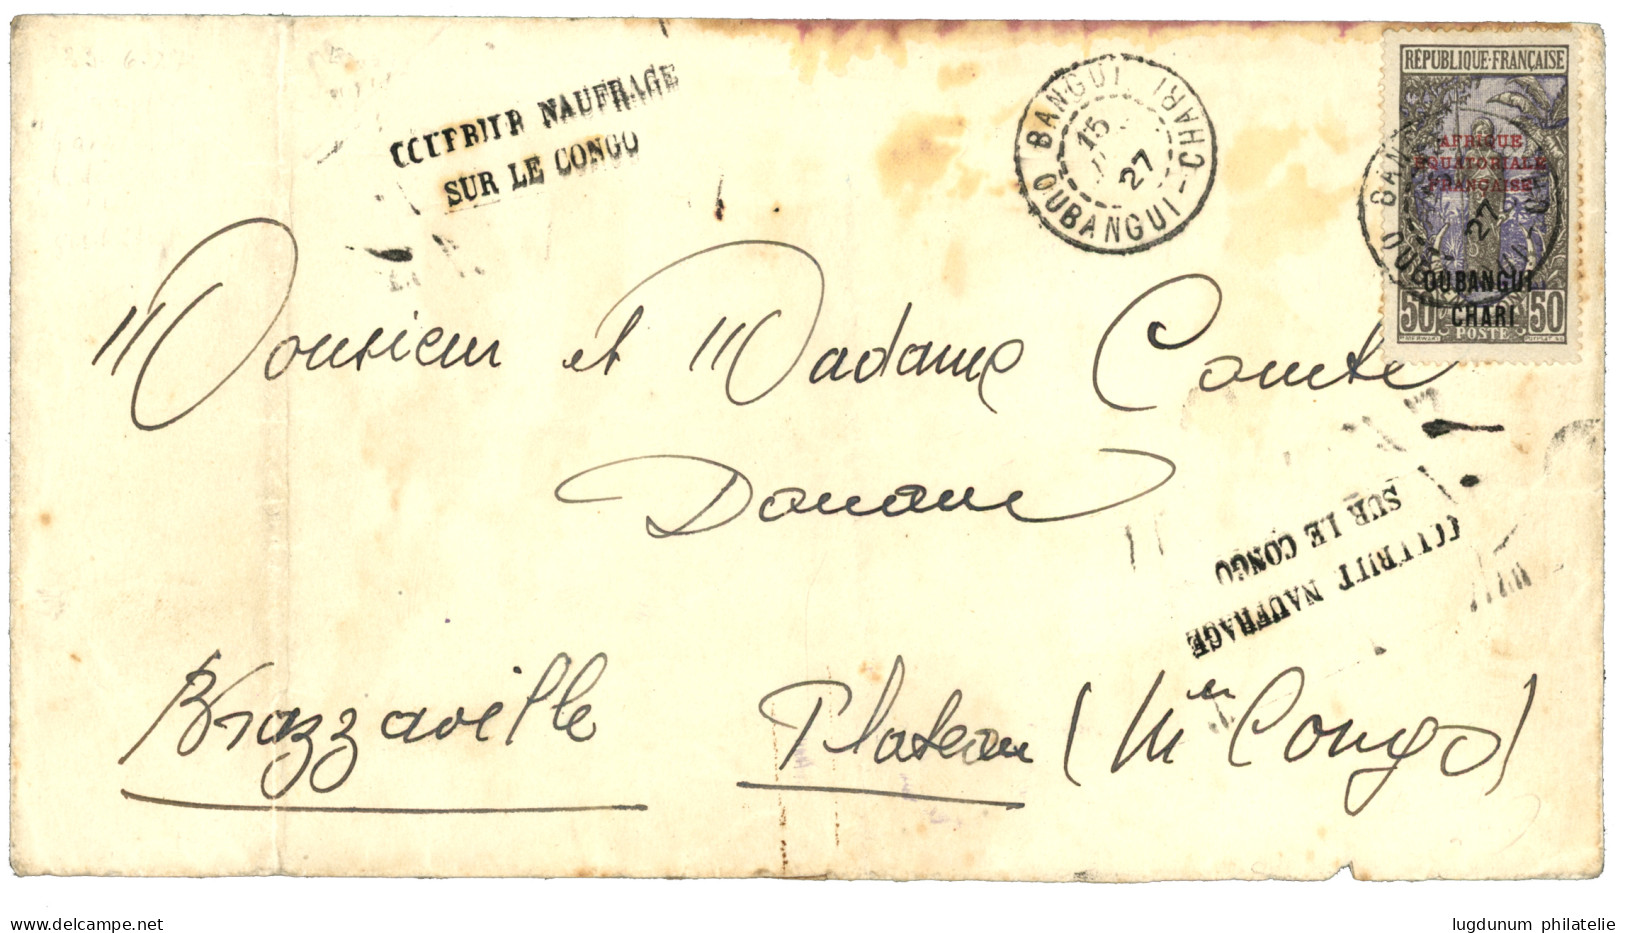 COURRIER NAUFRAGE
SUR LE CONGO
BANGUI
OUBANGUI-CHARI
15
27
RÉPUBLIQUE-FRANÇAISE
AFRIQUE
EQUATORIALE
FRANÇAISE
27
OUBANGUI
CHARI
50 POSTE 50
Monsieur et Madame Comte
Douane
COURRIER NAUFRAGE
SUR LE CONGO
Brazzaville Plateau (Mn Congo)
delcampe.net
lugdunum philatelie